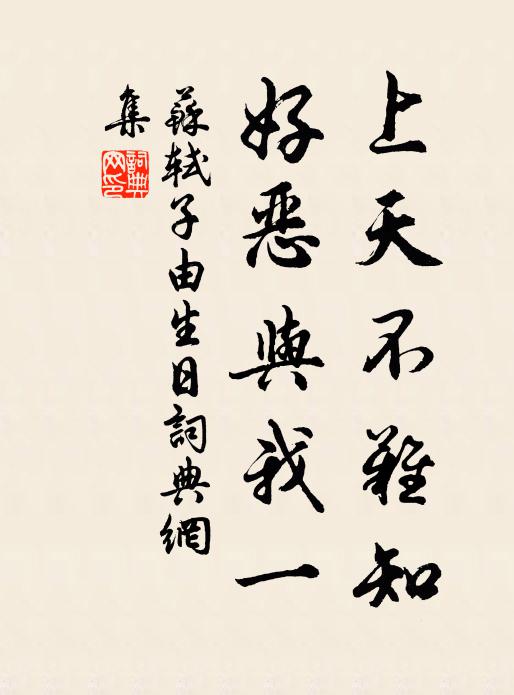 上天不難知
好惡與我一
蘇軾子由生日詞典網
集
詞典網印